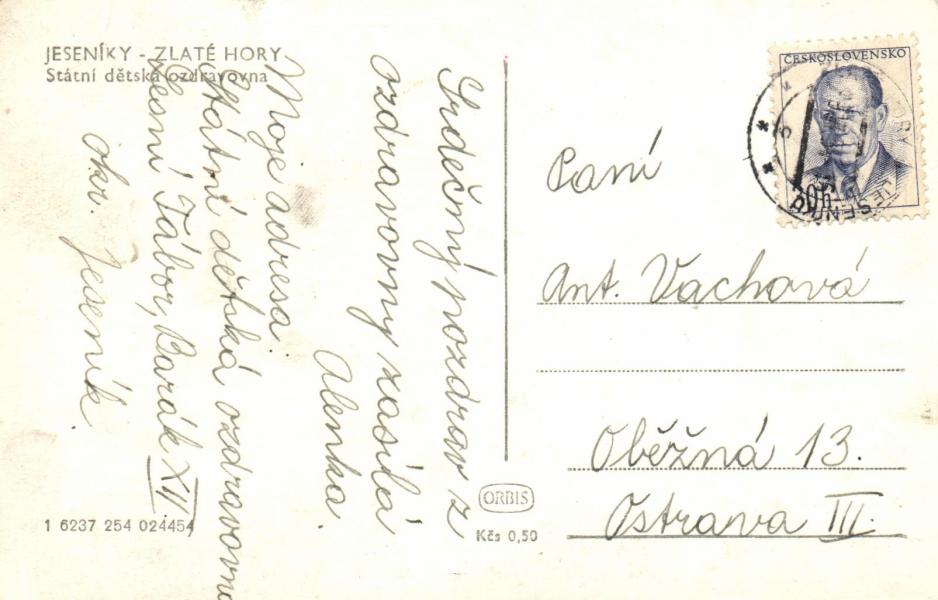 JESENÍKY - ZLATÉ HORY
Státní dětská ozdravovna
Srdečný pozdrav z
ozdravovny zasílá
Alenka.
Moje adresa:
Státní dětská ozdravovna
Lesní Tábor, Barák XII,
okr. Jeseník.
1 6237 254 024454
ORBIS
Kčs 0,50
ČESKOSLOVENSKO
Paní
Ant. Vachová
Oběžná 13.
Ostrava III.